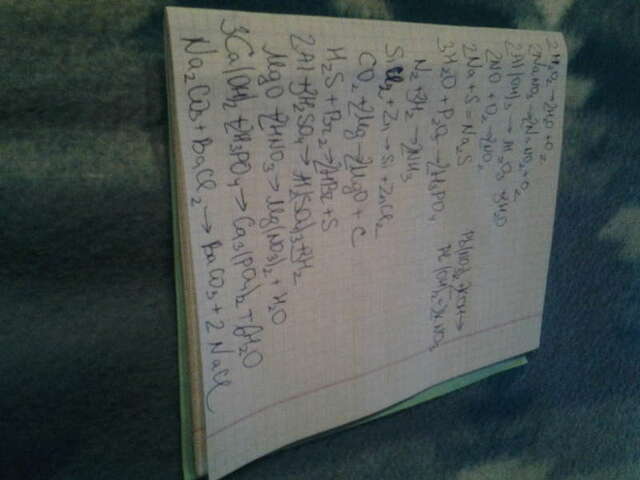 2H2O2 → 2H2O + O2
2NaNO3 → 2NaNO2 + O2
2Al(OH)3 → Al2O3 + 3H2O
2NO + O2 → 2NO2
2Na + S = Na2S
3H2O + P2O5 → 2H3PO4
N2 + 3H2 → 2NH3
SiCl4 + 2Zn → Si + 2ZnCl2
CO2 + 2Mg → 2MgO + C
H2S + Br2 → 2HBr + S
2Al + 3H2SO4 → Al2(SO4)3 + 3H2
MgO + 2HNO3 → Mg(NO3)2 + H2O
3Ca(OH)2 + 2H3PO4 → Ca3(PO4)2 + 6H2O
Na2CO3 + BaCl2 → BaCO3 + 2NaCl